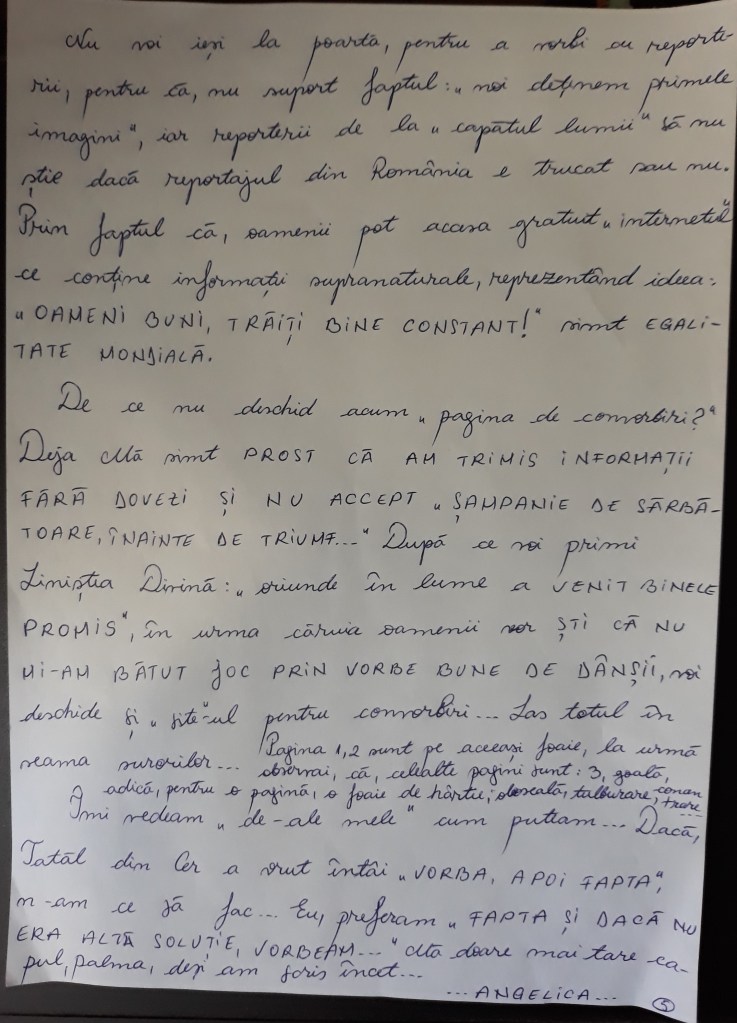 Nu voi ieși la poarta, pentru a vorbi cu reporte-
rii, pentru că, nu suport faptul: „noi deținem primele
imagini", iar reporterii de la „capătul lumii" să nu
știe dacă reportajul din România e trucat sau nu.
Prin faptul că, oamenii pot accesa gratuit „internetul"
ce conține informații supranaturale, reprezentând ideea:
„OAMENI BUNI, TRĂIȚI BINE CONSTANT!" simt EGALI-
TATE MONDIALĂ.
De ce nu deschid acum „pagina de convorbiri?"
Deja Mă simt PROST CĂ AM TRIMIS INFORMAȚII
FĂRĂ DOVEZI ȘI NU ACCEPT „ȘAMPANIE DE SĂRBĂ-
TOARE, ÎNAINTE DE TRIUMF..." După ce voi primi
Liniștea Divină: „oriunde în lume a VENIT BINELE
PROMIS", în urma căruia oamenii vor ȘTI CĂ NU
MI-AM BĂTUT JOC PRIN VORBE BUNE DE DÂNȘII, voi
deschide și „site"-ul pentru convorbiri... Las totul în
seama surorilor... Pagina 1,2 sunt pe aceeași foaie, la urmă
observai, că, celelalte pagini sunt: 3, goală,
adică, pentru o pagină, o foaie de hârtie;
Îmi vedeam „de-ale mele" cum puteam... Dacă,
Tatăl din Cer a vrut întâi „VORBA, APOI FAPTA",
n-am ce să fac... Eu, preferam „FAPTA ȘI DACĂ NU
ERA ALTĂ SOLUȚIE, VORBEAM..." Mă doare mai tare ca-
pul, palma, deși am scris încet...
...ANGELICA...
5